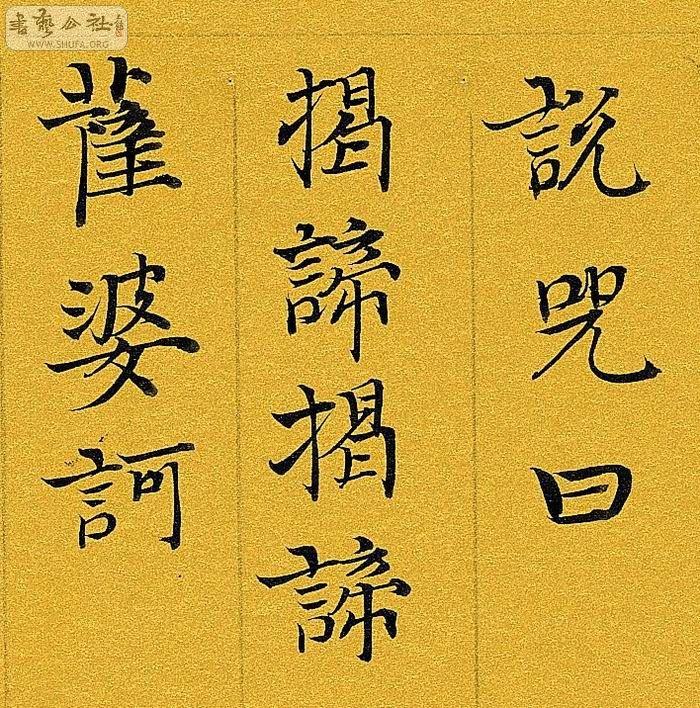 書藝公社
WWW.SHUFA.ORG
說咒曰
揭諦揭諦
薩婆訶